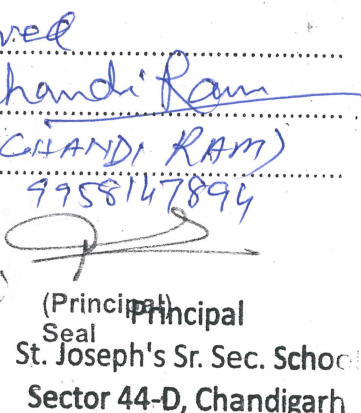 Chandi Ram
(CHANDI RAM)
9958147894
(Principal)
Seal
Principal
St. Joseph's Sr. Sec. School
Sector 44-D, Chandigarh